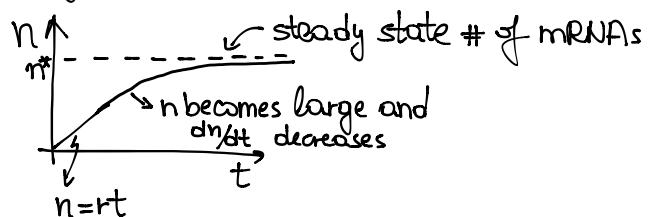 n
steady state # of mRNAs
n*
n becomes large and
dn/dt decreases
t
n=rt